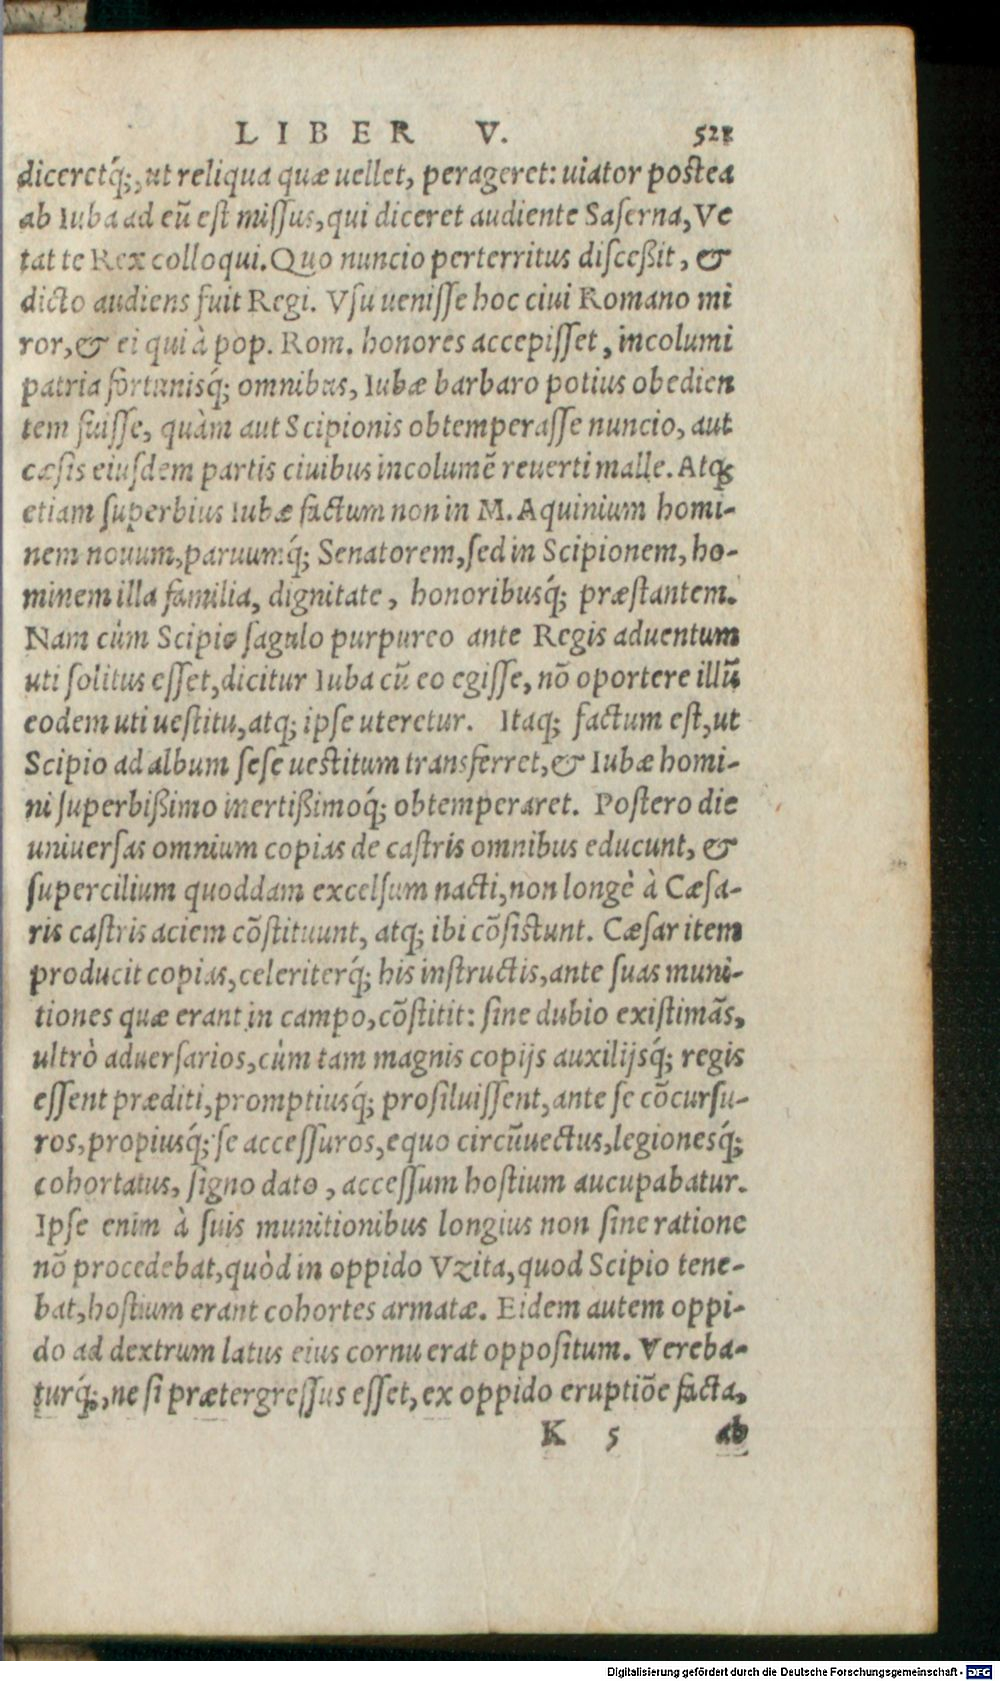 LIBER V. 521
diceretq́;, ut reliqua quæ uellet, perageret: uiator postea
ab Iuba ad eũ est missus, qui diceret audiente Saserna, Ve
tat te Rex colloqui. Quo nuncio perterritus disceßit, &
dicto audiens fuit Regi. Vsu uenisse hoc ciui Romano mi
ror, & ei qui à pop. Rom. honores accepisset, incolumi
patria fortunisq́; omnibus, Iubæ barbaro potius obedien
tem fuisse, quàm aut Scipionis obtemperasse nuncio, aut
cæsis eiusdem partis ciuibus incolumẽ reuerti malle. Atq;
etiam superbius Iubæ factum non in M. Aquinium homi-
nem nouum, paruumq́; Senatorem, sed in Scipionem, ho-
minem illa familia, dignitate, honoribusq́; præstantem.
Nam cùm Scipio sagulo purpureo ante Regis aduentum
uti solitus esset, dicitur Iuba cũ eo egisse, nõ oportere illũ
eodem uti uestitu, atq; ipse uteretur. Itaq; factum est, ut
Scipio ad album sese uestitum transferret, & Iubæ homi-
ni superbißimo inertißimoq́; obtemperaret. Postero die
uniuersas omnium copias de castris omnibus educunt, &
supercilium quoddam excelsum nacti, non longè à Cæsa-
ris castris aciem cõstituunt, atq; ibi cõsistunt. Cæsar item
producit copias, celeriterq́; his instructis, ante suas muni-
tiones quæ erant in campo, cõstitit: sine dubio existimãs,
ultrò aduersarios, cùm tam magnis copijs auxilijsq́; regis
essent præditi, promptiusq́; prosiluissent, ante se cõcursu-
ros, propiusq́; se accessuros, equo circũuectus, legionesq́;
cohortatus, signo dato, accessum hostium aucupabatur.
Ipse enim à suis munitionibus longius non sine ratione
nõ procedebat, quòd in oppido Vzita, quod Scipio tene-
bat, hostium erant cohortes armatæ. Eidem autem oppi-
do ad dextrum latus eius cornu erat oppositum. Vereba-
turq́;, ne si prætergressus esset, ex oppido eruptiõe facta,
K 5 ab
Digitalisierung gefördert durch die Deutsche Forschungsgemeinschaft - DFG